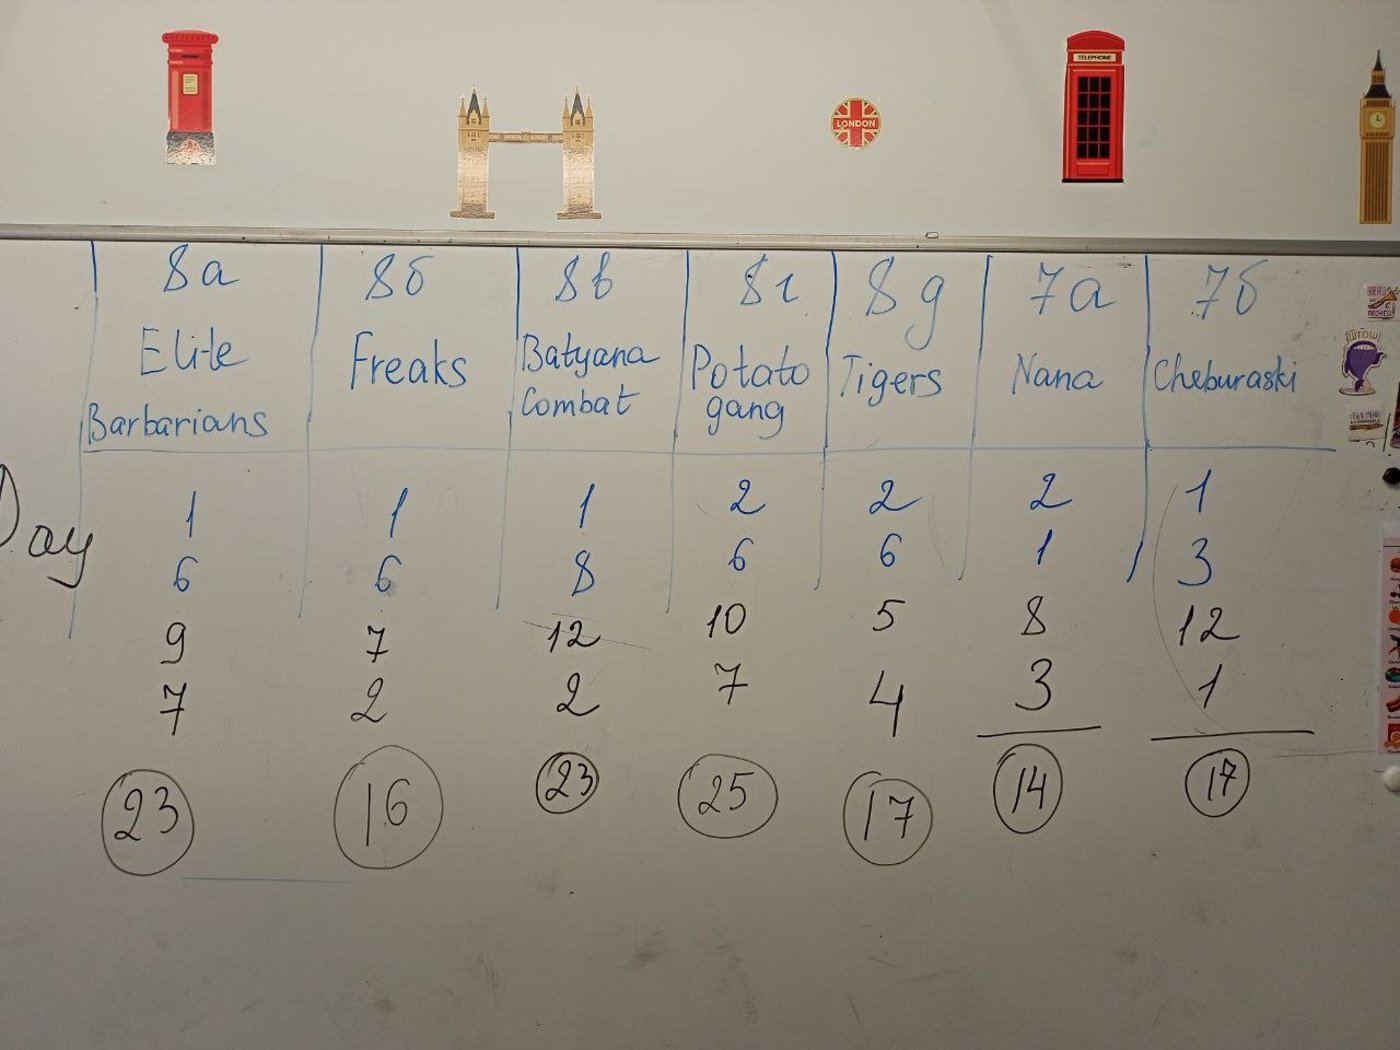 TELEPHONE
LONDON
8а 8б 8в 8г 8д 7а 7б
Elite Freaks Batyana Potato Tigers Nana Cheburaski
Barbarians Combat gang
1 1 1 2 2 2 1
Day
6 6 8 6 6 1 3
9 7 12 10 5 8 12
7 2 2 7 4 3 1
23 16 23 25 17 14 17